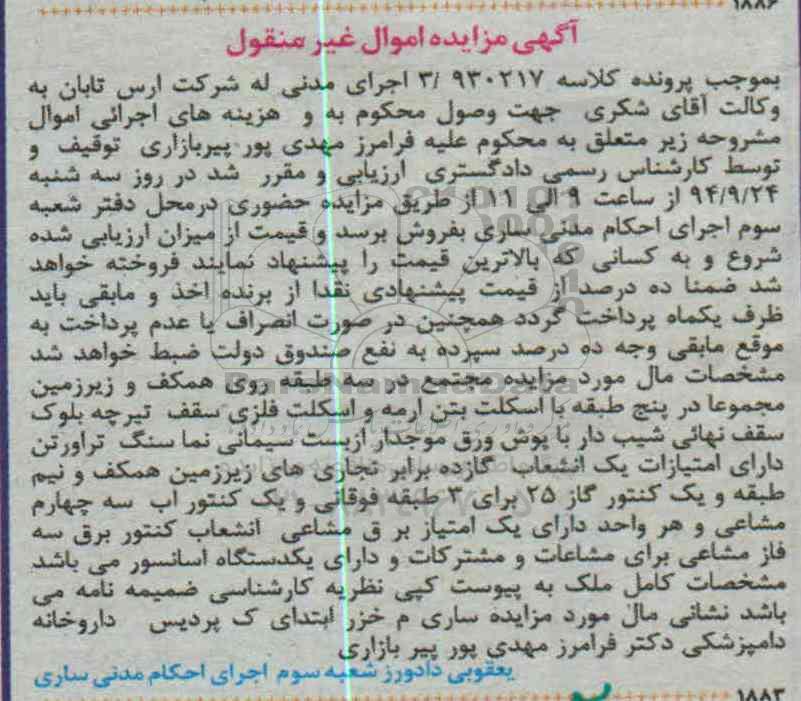 ۱۸۸۶
آگهی مزایده اموال غیر منقول
بموجب پرونده کلاسه ۹۳۰۲۱۷ /۳ اجرای مدنی له شرکت ارس تابان به
وکالت آقای شکری جهت وصول محکوم به و هزینه های اجرائی اموال
مشروحه زیر متعلق به محکوم علیه فرامرز مهدی پور-پیربازاری توقیف و
توسط کارشناس رسمی دادگستری ارزیابی و مقرر شد در روز سه شنبه
۹۴/۹/۲۴ از ساعت ۹ الی ۱۱ از طریق مزایده حضوری درمحل دفتر شعبه
سوم اجرای احکام مدنی ساری بفروش برسد و قیمت از میزان ارزیابی شده
شروع و به کسانی که بالاترین قیمت را پیشنهاد نمایند فروخته خواهد
شد ضمنا ده درصد از قیمت پیشنهادی نقدا از برنده اخذ و مابقی باید
ظرف یکماه پرداخت گردد همچنین در صورت انصراف یا عدم پرداخت به
موقع مابقی وجه ده درصد سپرده به نفع صندوق دولت ضبط خواهد شد
مشخصات مال مورد مزایده مجتمع در سه طبقه روی همکف و زیرزمین
مجموعا در پنج طبقه با اسکلت بتن ارمه و اسکلت فلزی سقف تیرچه بلوک
سقف نهائی شیب دار با پوش ورق موجدار ازبست سیمانی نما سنگ تراورتن
دارای امتیازات یک انشعاب گازده برابر تجاری های زیرزمین همکف و نیم
طبقه و یک کنتور گاز ۲۵ برای ۳ طبقه فوقانی و یک کنتور اب سه چهارم
مشاعی و هر واحد دارای یک امتیاز بر ق مشاعی انشعاب کنتور برق سه
فاز مشاعی برای مشاعات و مشترکات و دارای یکدستگاه اسانسور می باشد
مشخصات کامل ملک به پیوست کپی نظریه کارشناسی ضمیمه نامه می
باشد نشانی مال مورد مزایده ساری م خزر ابتدای ک پردیس داروخانه
دامپزشکی دکتر فرامرز مهدی پور پیر بازاری
یعقوبی دادورز شعبه سوم اجرای احکام مدنی ساری
۱۸۸۳
ParsNamadData